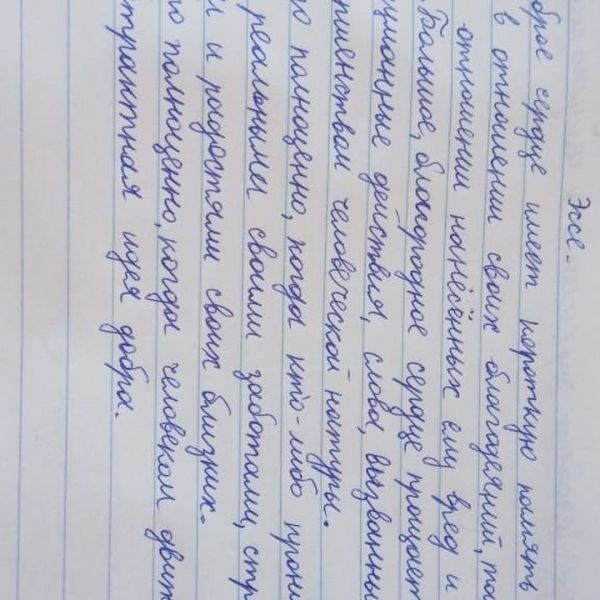 Эссе.
брое сердце имеет короткую память
в отношении своих благодеяний, та
отношении нанесённых ему вред и
Большое, благородное сердце прощает
ционные действия, слова, вызванны
ршенством человеческой натуры.
о полноценно, когда кто-либо прони
реальными своими заботами, стр
и и радостями своих близких.
о полноценно, когда человеком двиг
трактная идея добра.